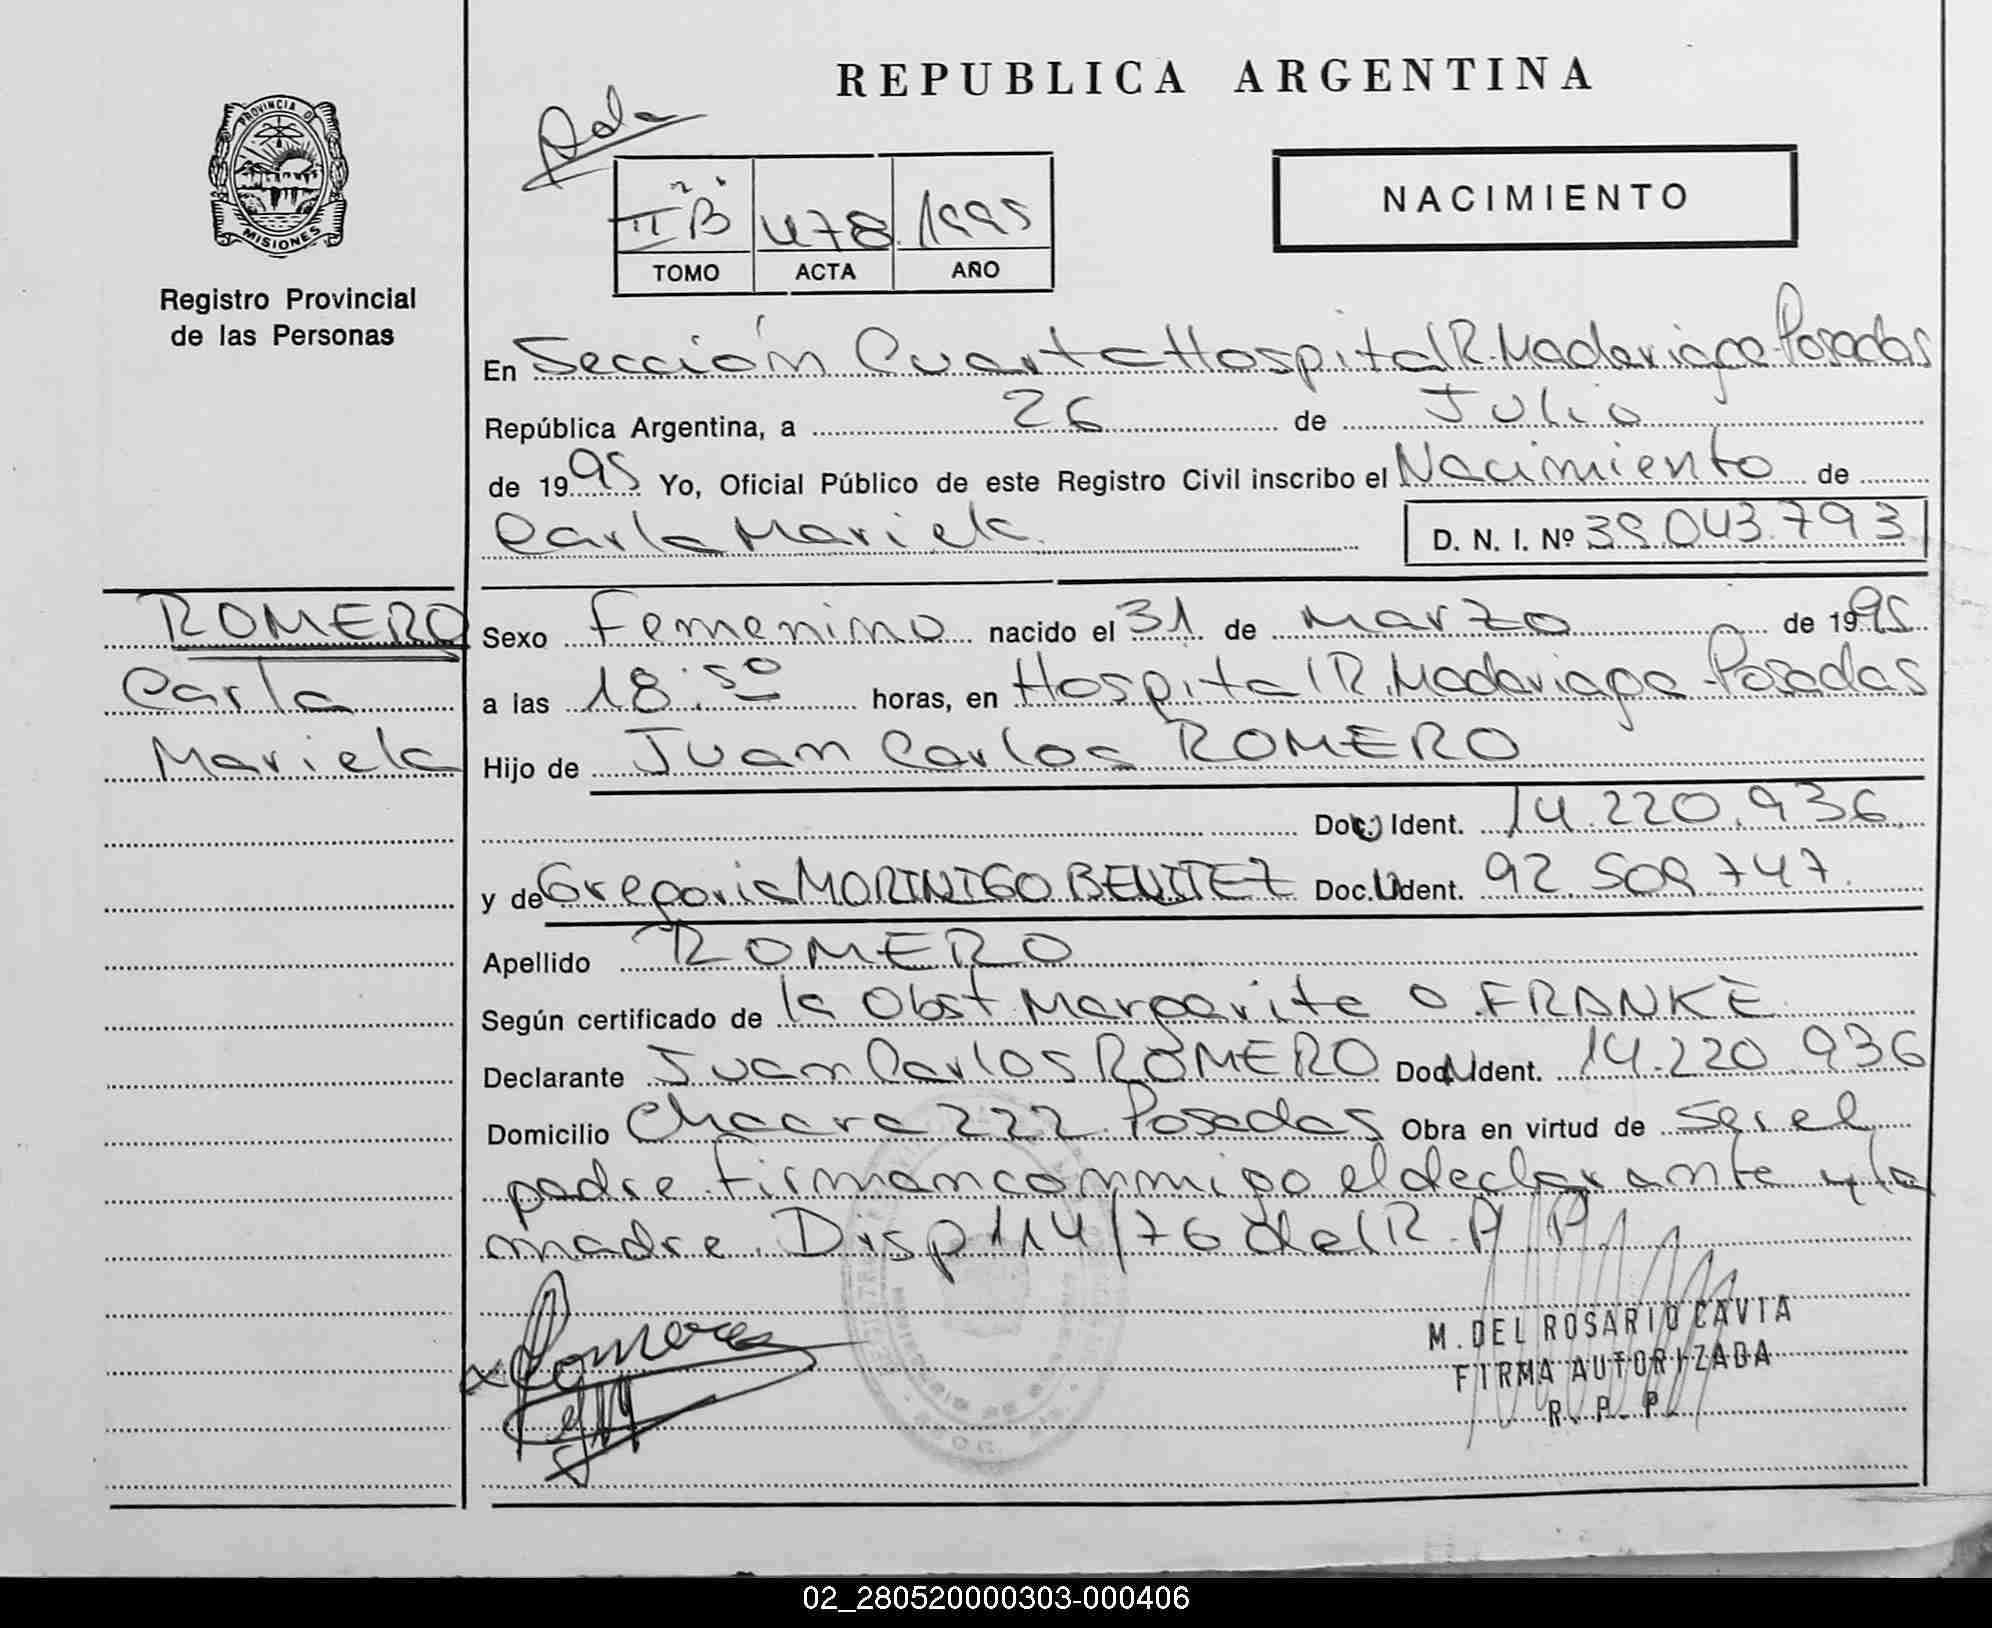 REPUBLICA ARGENTINA
PROVINCIA DE
MISIONES
Registro Provincial
de las Personas
Rda
II B 478 1995
TOMO ACTA AÑO
NACIMIENTO
En Sección Cuarta Hospital R. Madariaga Posadas
República Argentina, a 26 de Julio
de 1995 Yo, Oficial Público de este Registro Civil inscribo el Nacimiento de
Carla Mariela. D. N. I. Nº 39.043.793
ROMERO
Carla
Mariela
Sexo Femenino nacido el 31 de Marzo de 1995
a las 18:50 horas, en Hospital R. Madariaga Posadas
Hijo de Juan Carlos ROMERO
Doc. Ident. 14.220.936
y de Gregoria MORINIGO BENITEZ Doc. Ident. 92.509.747.
Apellido ROMERO
Según certificado de la Obst Margarita O. FRANKE
Declarante Juan Carlos ROMERO Doc. Ident. 14.220.936
Domicilio Chacra 222 Posadas Obra en virtud de ser el
padre. firman conmigo el declarante y la
madre. Disp 114/76 del R. P. P.
Romero
M. DEL ROSARIO CAVIA
FIRMA AUTORIZADA
R. P. P.
02_280520000303-000406